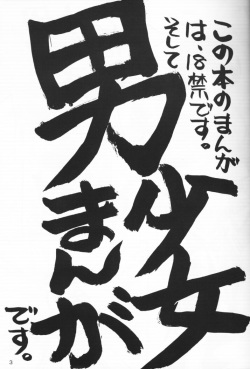 この本のまんが
は、18禁です。
そして
男少女
まんが
です。
3